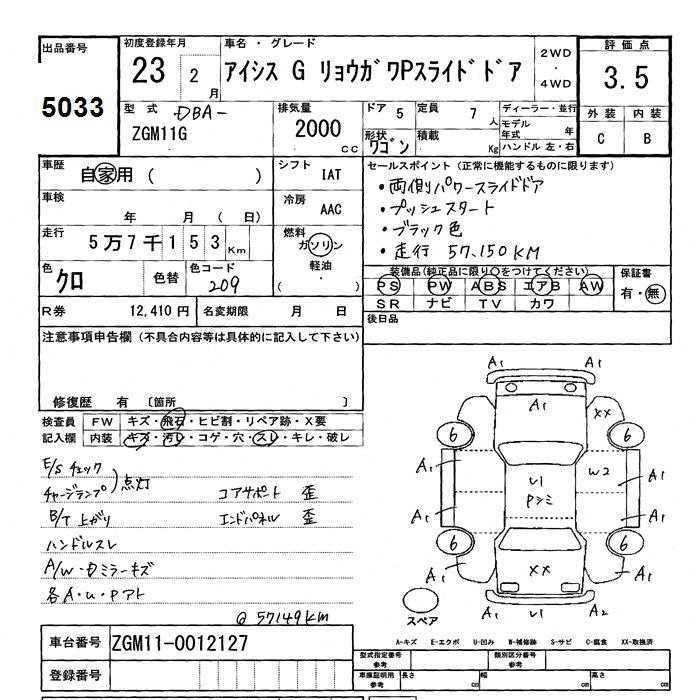 出品番号
5033
初度登録年月
23 2月
車名・グレード
アイシス G リョウガワPスライドドア
2WD
・
4WD
評価点
3.5
外装 内装
C B
型式 DBA-
ZGM11G
排気量
2000 cc
ドア 5
形状 ワゴン
定員 7人
積載 Kg
ディーラー・並行
モデル年式 年
ハンドル 左・右
車歴 自家用 ( )
シフト IAT
車検 年 月 ( 日)
冷房 AAC
走行 5万7千153Km
燃料 ガソリン
軽油
( ・ )
色 クロ 色替 色コード 209
R券 12,410円 名変期限 月 日
セールスポイント(正常に機能するものに限ります)
・両側パワースライドドア
・プッシュスタート
・ブラック色
・走行 57,150KM
装備品(純正品に限り○をつけてください)
PS PW ABS エアB AW
SR ナビ TV カワ
保証書
有・無
後日品
注意事項申告欄(不具合内容等は具体的に記入して下さい)
修復歴 有 〔箇所 〕
検査員 FW キズ・飛石・ヒビ割・リペア跡・X要
記入欄 内装 キズ・汚レ・コゲ・穴・スレ・キレ・破レ
E/Sチェック
チャージランプ)点灯
コアサポート 歪
B/T上がり
エンドパネル 歪
ハンドルスレ
A/W・Dミラーキズ
各A・U・Pアト
@57149KM
A1 A1
A1
XX
6 6
A1 U1 W2 A1
Pシミ
A1 A1
6 6
A1 XX A1
A1 U1 A2
スペア
A-キズ E-エクボ U-凹み W-補修跡 S-サビ C-腐食 XX-取換済
車台番号 ZGM11-0012127
登録番号
型式指定番号 参考
類別区分番号 参考
車庫証明用 参考 長さ cm 幅 cm 高さ cm